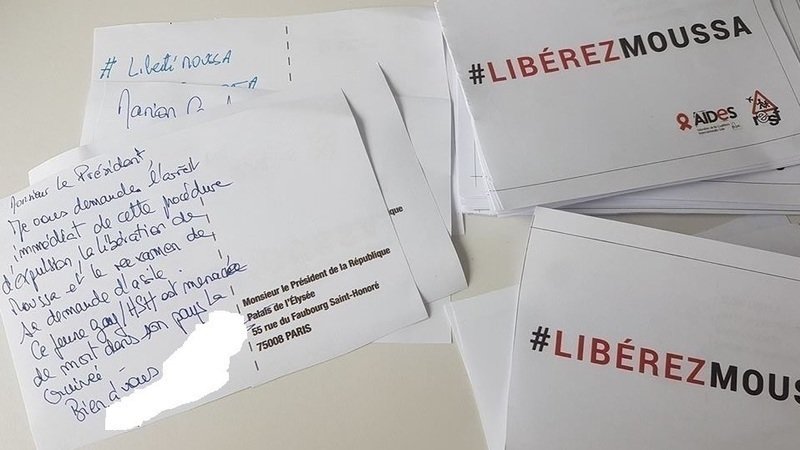 # Liberté MOUSSA
Marion
Monsieur le Président
Je vous demande l'arrêt
immédiat de cette procédure
d'expulsion, la libération de
Moussa et le réexamen de
sa demande d'asile.
Ce jeune gay/HSH est menacée
de mort dans son pays la
Guinée
Bien à vous
Monsieur le Président de la République
Palais de l'Élysée
55 rue du Faubourg Saint-Honoré
75008 PARIS
publique
#LIBÉREZMOUSSA
AIDES
resf
#LIBÉREZMOUS